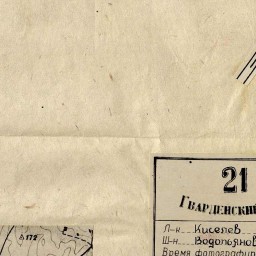 21
Гварденский
Л-н Киселев
Ш-н Водопьянов
Время фотографир
172